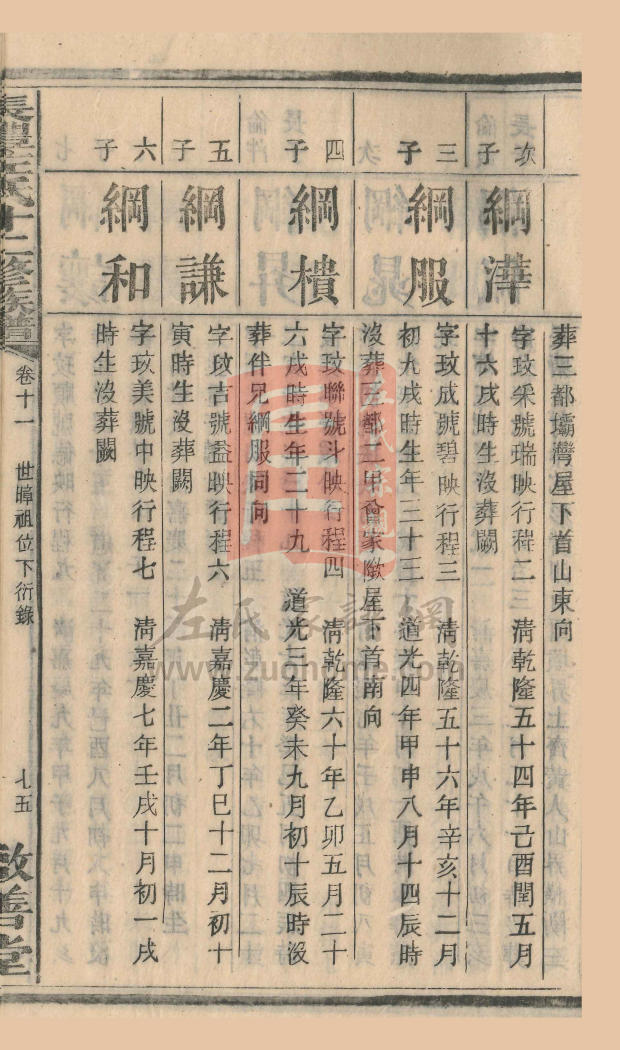 葬三都壩灣屋下首山東向
次子
綱澕
字玟采號瑞映行程二　清乾隆五十四年己酉閏五月
十六戌時生沒葬闕
三子
綱服
字玟成號碧映行程三　清乾隆五十六年辛亥十二月
初九戌時生年三十三　道光四年甲申八月十四辰時
沒葬三都二甲會家墩屋下首南向
四子
綱樻
字玟聯號斗映行程四　清乾隆六十年乙卯五月二十
六戌時生年二十九　道光三年癸未九月初十辰時沒
葬伴兄綱服同向
五子
綱謙
字玟吉號益映行程六　清嘉慶二年丁巳十二月初十
寅時生沒葬闕
六子
綱和
字玟美號中映行程七　清嘉慶七年壬戌十月初一戌
時生沒葬闕
長豊左氏十二修族譜
卷十一
世暲祖位下衍錄
七五
敦善堂
左氏家譜網
www.zuohome.com